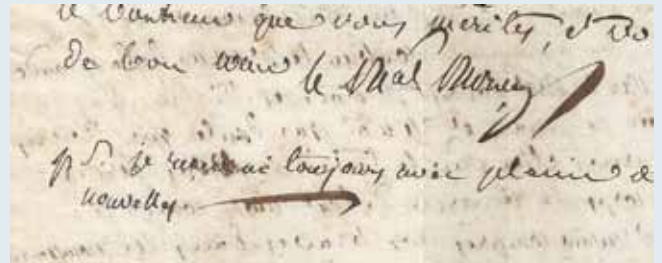 le bonheur que vous méritez, et
de bon
le Mal
p.S. je recevrai toujours avec plaisir
nouvelles.